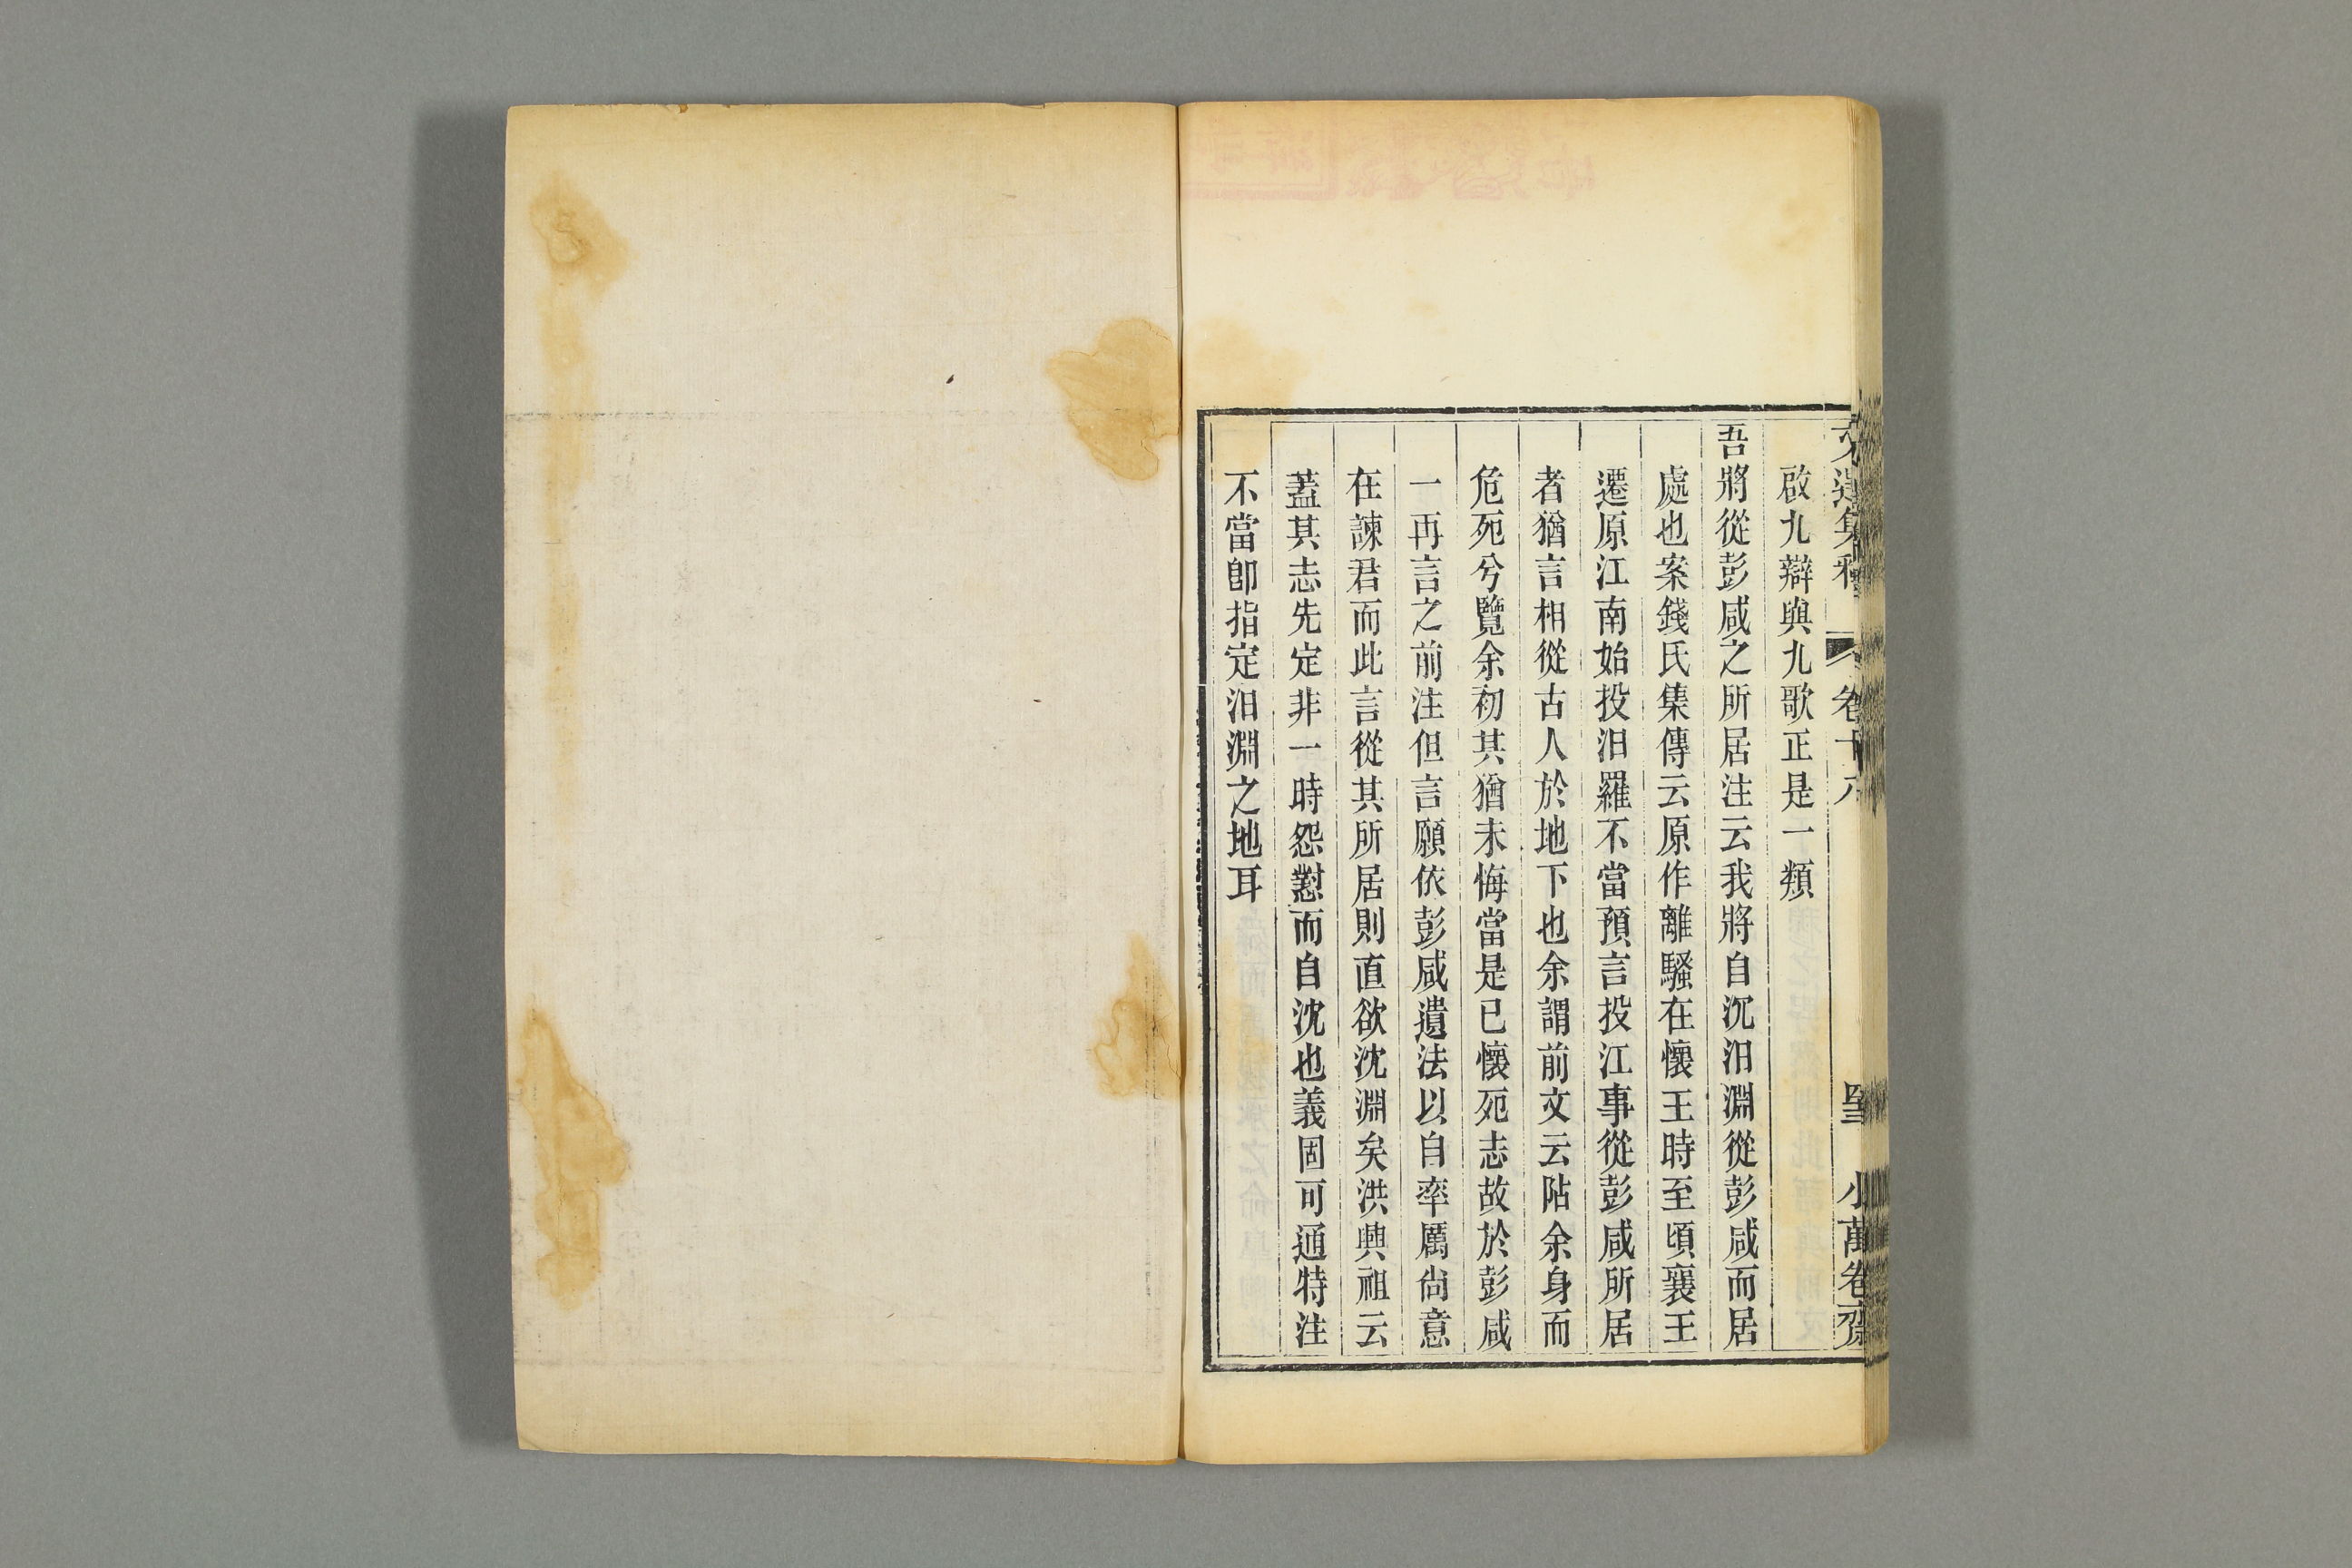 文選集釋 卷十八 小萬卷齋
啟九辯與九歌正是一類
吾將從彭咸之所居注云我將自沉汨淵從彭咸而居
處也案錢氏集傳云原作離騷在懷王時至頃襄王
遷原江南始投汨羅不當預言投江事從彭咸所居
者猶言相從古人於地下也余謂前文云阽余身而
危死兮覽余初其猶未悔當是已懷死志故於彭咸
一再言之前注但言願依彭咸遺法以自率厲尙意
在諫君而此言從其所居則直欲沈淵矣洪興祖云
蓋其志先定非一時怨懟而自沈也義固可通特注
不當卽指定汨淵之地耳